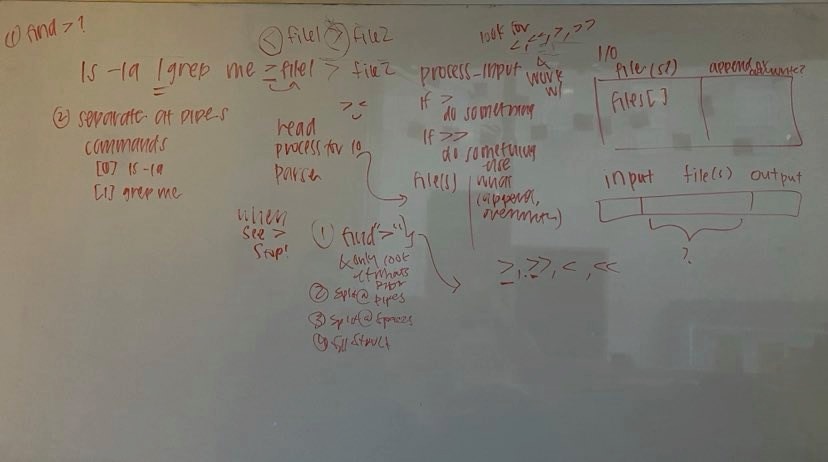 ① find > ?
< file1 > file2
ls -la | grep me > file1 > file2
② separate at pipes
commands
[0] ls -la
[1] grep me
> <
read
process for IO
parser
when
see >
stop!
① find ">"
& only look
at whats
prior
② split @ pipes
③ split @ spaces
④ fill struct
look for
<, <<, >, >>
process-input work
w/
If >
do something
If >>
do something
else
file(s)
what
(append,
overwrite)
>, >>, <, <<
I/O
file(s)?
append or
overwrite?
files[]
input file(s) output
?